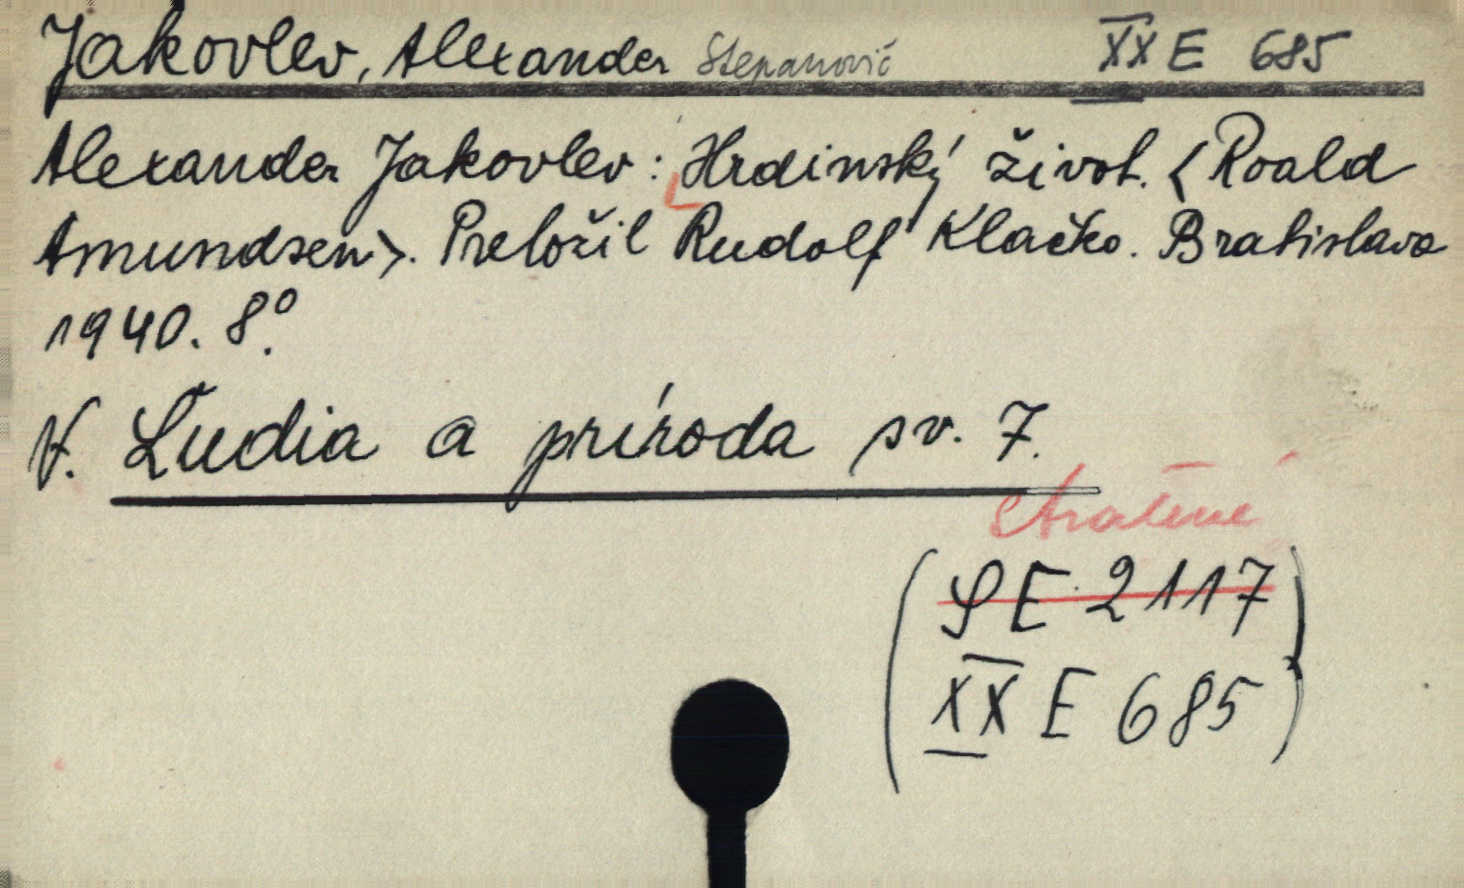 Jakovlev, Alexander Stepanovič XX E 685
Alexander Jakovlev: Hrdinský život. <Roald
Amundsen>. Preložil Rudolf Klačko. Bratislava
1940. 8°.
V. Ľudia a príroda sv. 7.
stratené
SE 2117
XX E 685